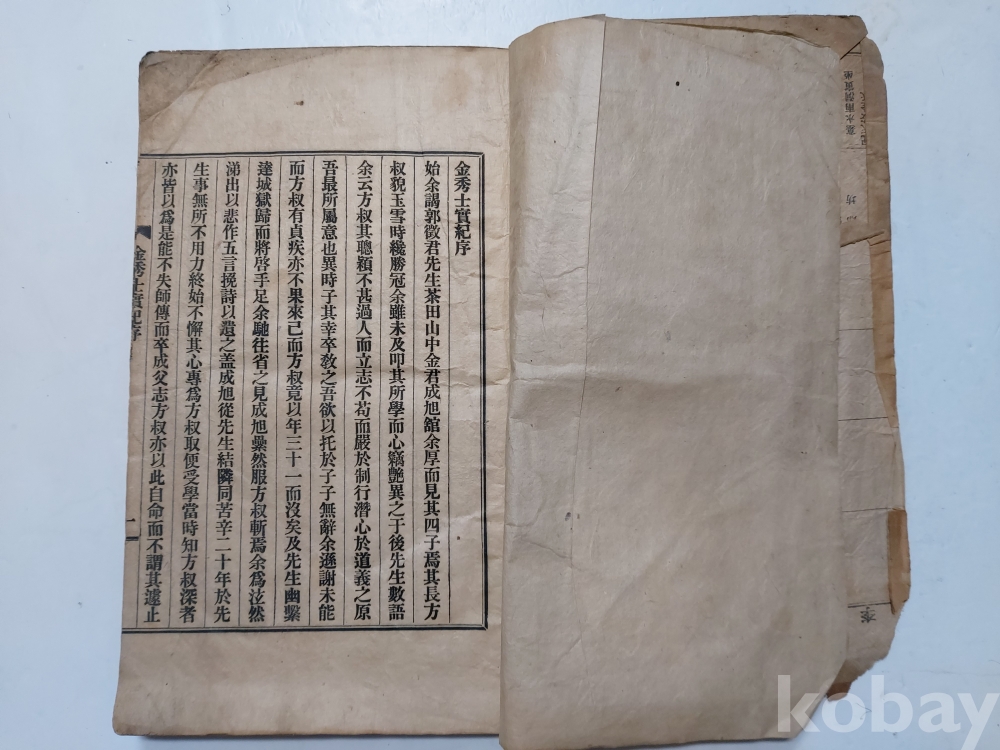 金秀士實紀序
始余謁郭徵君先生茶田山中金君成旭舘余厚而見其四子焉其長方
叔貌玉雪時纔勝冠余雖未及叩其所學而心竊艶異之于後先生數語
余云方叔其聰穎不甚過人而立志不苟而嚴於制行潛心於道義之原
吾最所屬意也異時子其幸卒敎之吾欲以托於子子無辭余遜謝未能
而方叔有貞疾亦不果來已而方叔竟以年三十一而沒矣及先生幽繫
達城獄歸而將啓手足余馳往省之見成旭纍然服方叔斬焉余爲泫然
涕出以悲作五言挽詩以遺之盖成旭從先生結隣同苦辛二十年於先
生事無所不用力終始不懈其心專爲方叔取便受學當時知方叔深者
亦皆以爲是能不失師傳而卒成父志方叔亦以此自命而不謂其遽止
金秀士實紀序
二
李
kobay